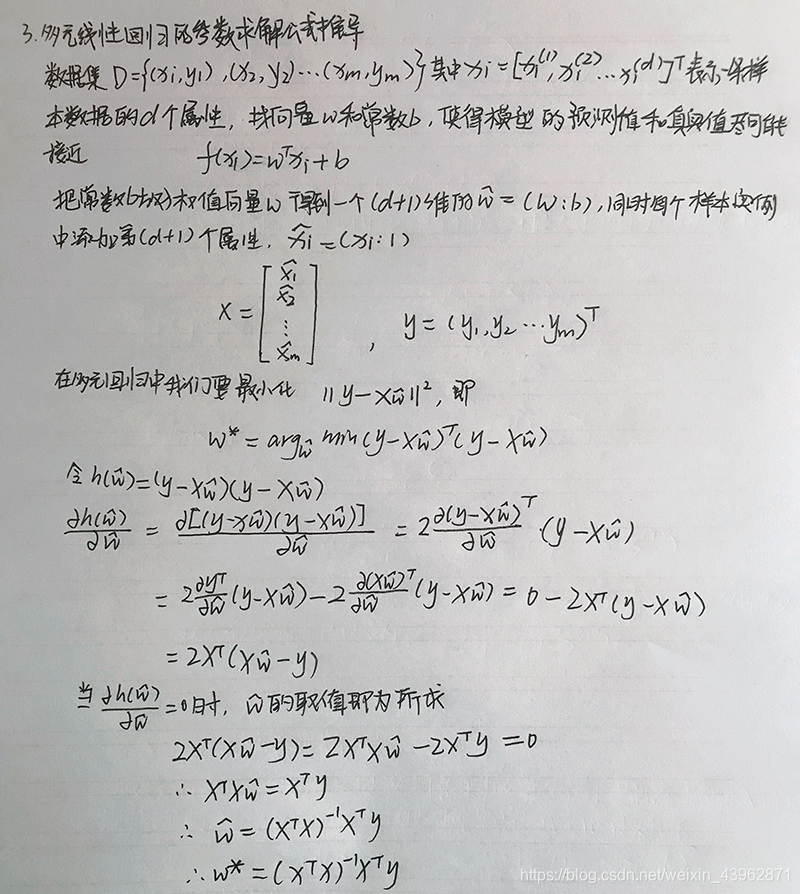 3.多元线性回归的参数求解公式推导
数据集 D={(x₁,y₁),(x₂,y₂)…(xₘ,yₘ)}其中xᵢ=[xᵢ⁽¹⁾,xᵢ⁽²⁾…xᵢ⁽ᵈ⁾]ᵀ表示一条样
本数据的d个属性,找向量w和常数b,使得模型的预测值和真实值尽可能
接近 f(xᵢ)=wᵀxᵢ+b
把常数b放到权值向量w得到一个(d+1)维的ŵ=(w:b),同时每个样本实例
中添加第(d+1)个属性, x̂ᵢ=(xᵢ:1)
X=[x̂₁ x̂₂ ⋮ x̂ₘ], y=(y₁,y₂…yₘ)ᵀ
在多元回归中我们要最小化 ||y-Xŵ||²,即
w*=arg_ŵ min(y-Xŵ)ᵀ(y-Xŵ)
令h(ŵ)=(y-Xŵ)(y-Xŵ)
∂h(ŵ)/∂ŵ = ∂[(y-xŵ)(y-Xŵ)]/∂ŵ = 2∂(y-Xŵ)ᵀ/∂ŵ·(y-Xŵ)
=2∂yᵀ/∂ŵ(y-Xŵ)-2∂(Xŵ)ᵀ/∂ŵ(y-Xŵ)=0-2Xᵀ(y-Xŵ)
=2Xᵀ(Xŵ-y)
当∂h(ŵ)/∂ŵ=0时,ŵ的取值即为所求
2Xᵀ(Xŵ-y)=2XᵀXŵ-2Xᵀy=0
∴ XᵀXŵ=Xᵀy
∴ ŵ=(XᵀX)⁻¹Xᵀy
∴w*=(XᵀX)⁻¹Xᵀy
https://blog.csdn.net/weixin_43962871